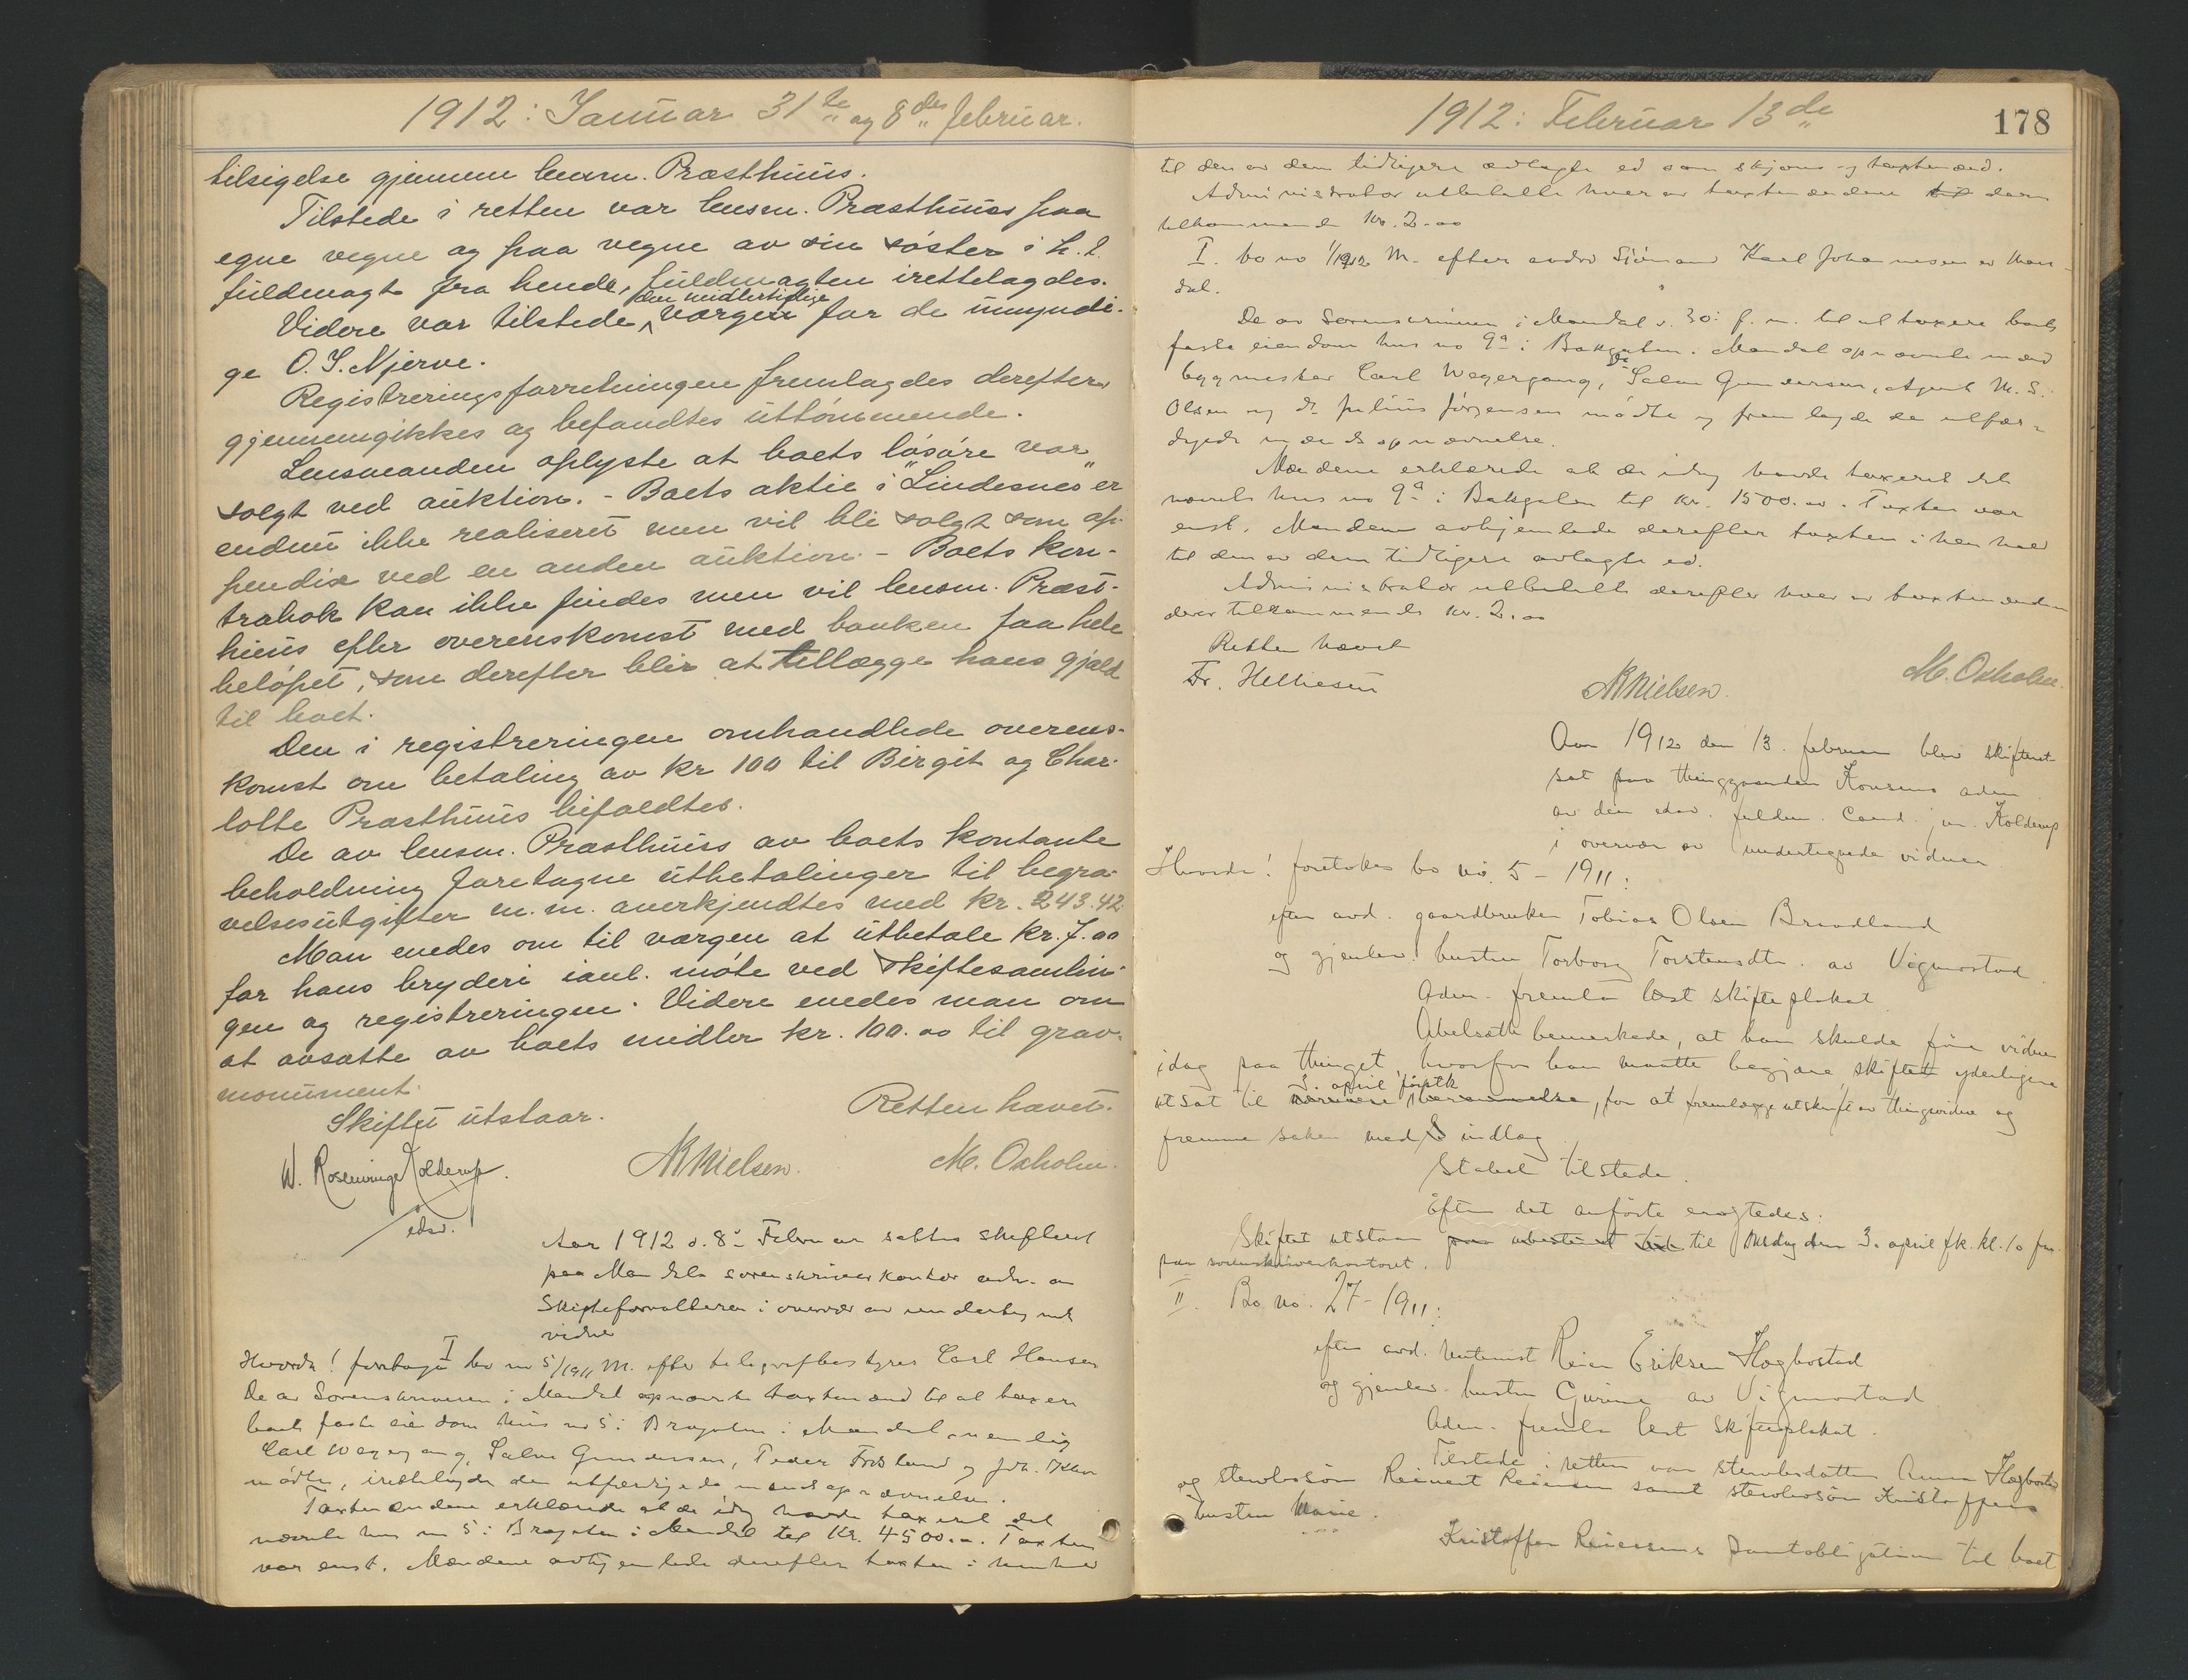 1912: Januar 31te og 8des februar.
tilsigelse gjennem lensm. Præsthuus.
Tilstede i retten var lensm. Præsthuus paa
egne vegne og paa vegne av sin søster i h.t.
fuldmagt fra hende, fuldmagten irettelagdes.
Videre var tilstede den midlertidige værgen for de umyndi-
ge O. T. Njerve.
Registreringsforretningen fremlagdes derefter
gjennemgikkes og befandtes uttømmende.
Lensmanden oplyste at boets løsøre var
solgt ved auktion. - Boets aktie i "Lindesnes" er
endnu ikke realiseret men vil bli solgt som ap-
pendix ved en anden auktion. - Boets kon-
trabok kan ikke findes men vil lensm. Præst-
huus efter overenskomst med banken faa hele
beløpet, som derefter blir at tillægge hans gjæld
til boet.
Den i registreringen omhandlede overens-
komst om betaling av kr 100 til Birgit og Char-
lotte Præsthuus bifaldtes.
De av lensm. Præsthuus av boets kontante
beholdning foretagne utbetalinger til begra-
velsesutgifter m.m. anerkjendtes med kr. 243.42
Man enedes om til værgen at utbetale kr. 7.00
for hans bryderi ianl. møte ved skiftesamlin-
gen og registreringen. Videre enedes man om
at avsætte av boets midler kr. 100.00 til grav-
monument.
Skiftet utstaar. Retten hævet.
W. Rosenvinge Kolderup. NNielsen. M. Oxholm.
edsv.
Aar 1912 d. 8de Februar sattes skifteret
paa Mandals sorenskriverkontor adm. av
Skifteforvalteren i overvær av undertegnede
vidner
Hvorda! foretages I bo no 5/1911 M. efter telegrafbestyrer Carl Hansen
De av Sorenskriveren i Mandal opnævnte taxtmænd til at taxere
boets faste eiendom hus no 5 i Brogaten i Mandal nemlig
Carl Wegergang, Salve Gundersen, Peder Frøsland og Joh.
mødte, irettelagde den utfærdigede mandsopnævnelse.
Taxtmændene erklærede at de idag havde taxeret det
nævnte hus no 5 i Brogaten i Mandal til Kr. 4500.00. Taxten
var enst. Mændene avhjemlede derefter taxten i henhold
1912: Februar 13de
178
til den av dem tidligere avlagte ed som skjøns og taxtmænd.
Administrator utbetalte hver av taxtmændene dem
tilkommende kr. 2.00
I. bo no 1/1912 M. efter avdøde Sjømand Karl Johannesen av Man-
dal.
De av Sorenskriveren i Mandal d. 30 f. m. til at taxere boets
faste eiendom hus no 9a i Bakgaten i Mandal opnævnte mænd
bygmester Carl Wegergang, Do Salve Gundersen, Agent M. S.
Olsen og do Julius Jørgensen mødte og fremlagde de utfær-
digede mandsopnævnelse.
Mændene erklærede at de idag havde taxeret det
nævnte hus no 9a i Bakgaten til kr. 1500.00. Taxten var
enst. Mændene avhjemlede derefter taxten i henhold
til den av dem tidligere avlagte ed.
Administrator utbetalte derefter hver av taxtmændene
deres tilkommende kr. 2.00
Retten hævet
Fr. Helliesen NNielsen. M. Oxholm.
Aar 1912 den 13. februar blev skifteret
sat paa thinggaarden Konsmo adm
av den edsv. fuldm. Cand. jur. Kolderup
i overvær av undertegnede vidner
Hvorda! foretokes bo no. 5 - 1911:
efter avd. gaardbruker Tobias Olsen Braadland
og gjenlev. hustru Torborg Torstensdtr. av Vigmostad
Adm. fremla læst skifteplakat.
Abelsæth bemerkede, at han skulde føre vidner
idag paa thinget, hvorfor han maatte begjære skiftet yderligere
utsat til nærmere berammelse 3. april førstk, for at fremlægge utskrift av thingsvidne og
fremme saken med indlæg
Stabel tilstede.
Efter det anførte eragtedes:
Skiftet utstaar paa ubestemt tid til onsdag den 3. april fk. kl. 10 fm.
paa sorenskriverkontoret.
II. Bo no. 27 - 1911:
efter avd. rentenist Reier Eriksen Hægbostad
og gjenlev. hustru Gurine av Vigmostad
Adm. fremla læst skifteplakat.
Tilstede i retten var stervbodatter Anna Hægbostad
og stervbosøn Reinert Reiersen samt stervbosøn Kristoffers
hustru Marie.
Kristoffer Reiersens pantobligation til boet